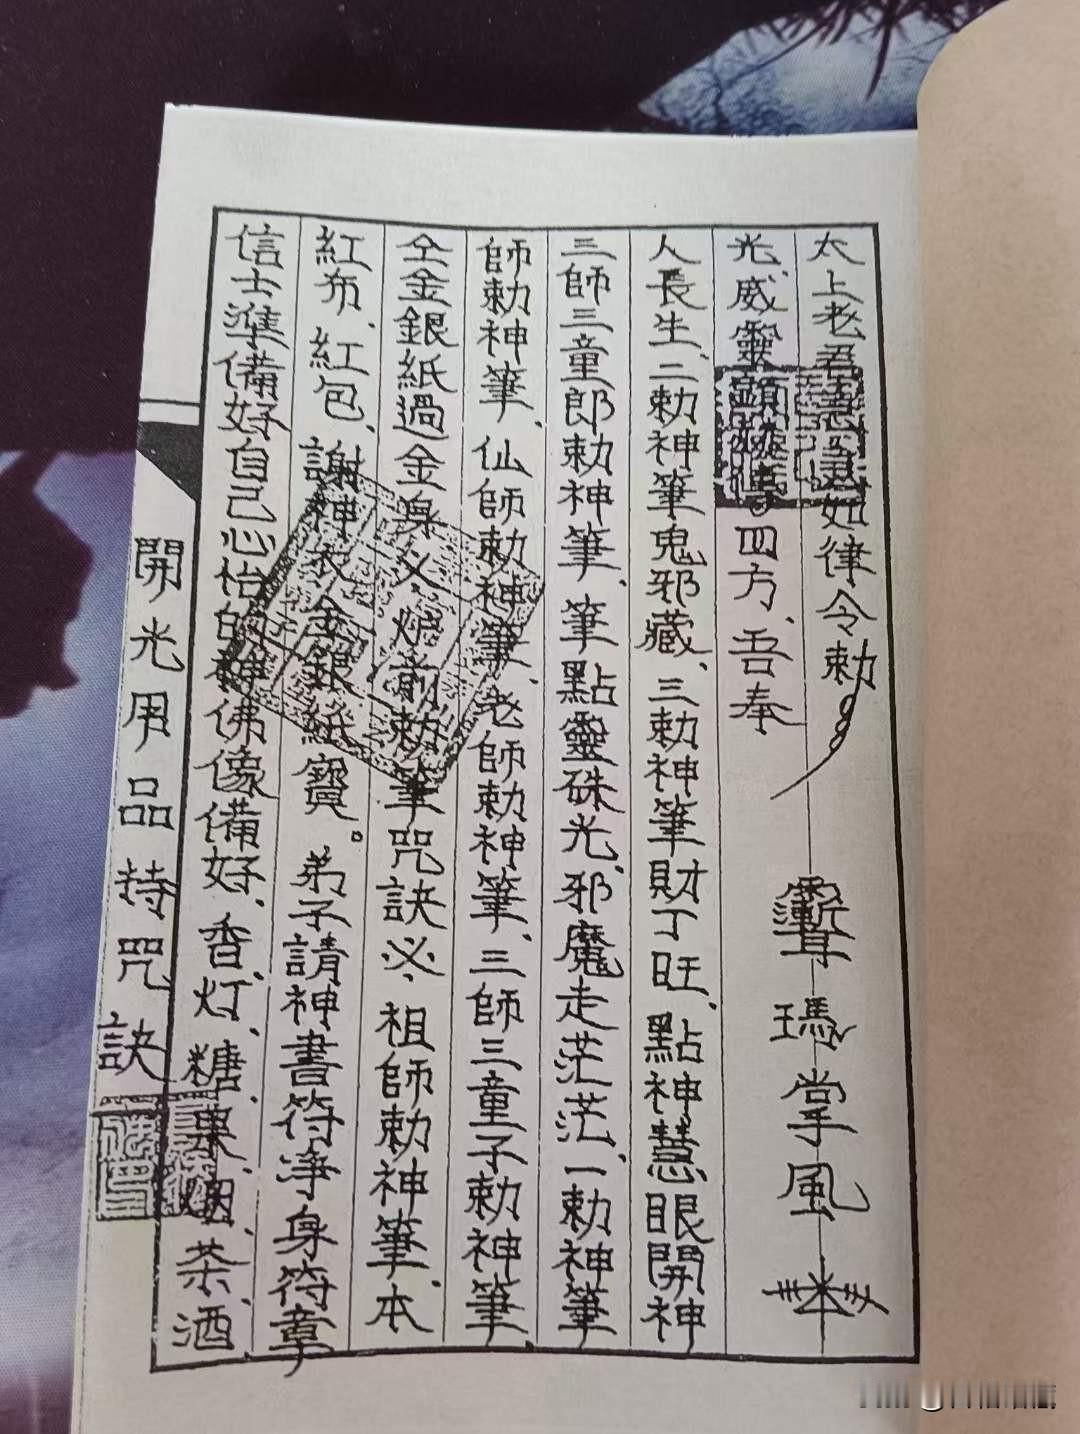 開光用品持咒訣
信士準備好自己心怡的神佛像備好、香、灯、糖果、烟、茶、酒、
紅布、紅包、謝神衣金銀紙寶。弟子請神書符淨身符章
仝金銀紙過金身父爐前勅筆咒訣必、祖師勅神筆、本
師勅神筆、仙師勅神筆、老師勅神筆、三師三童子勅神筆、
三師三童郎勅神筆、筆點靈硃光、邪魔走茫茫、一勅神筆
人長生、二勅神筆鬼邪藏、三勅神筆財丁旺、點神慧眼開神
光、威靈顯赫傳四方、吾奉
太上老君急急如律令勅
掌風